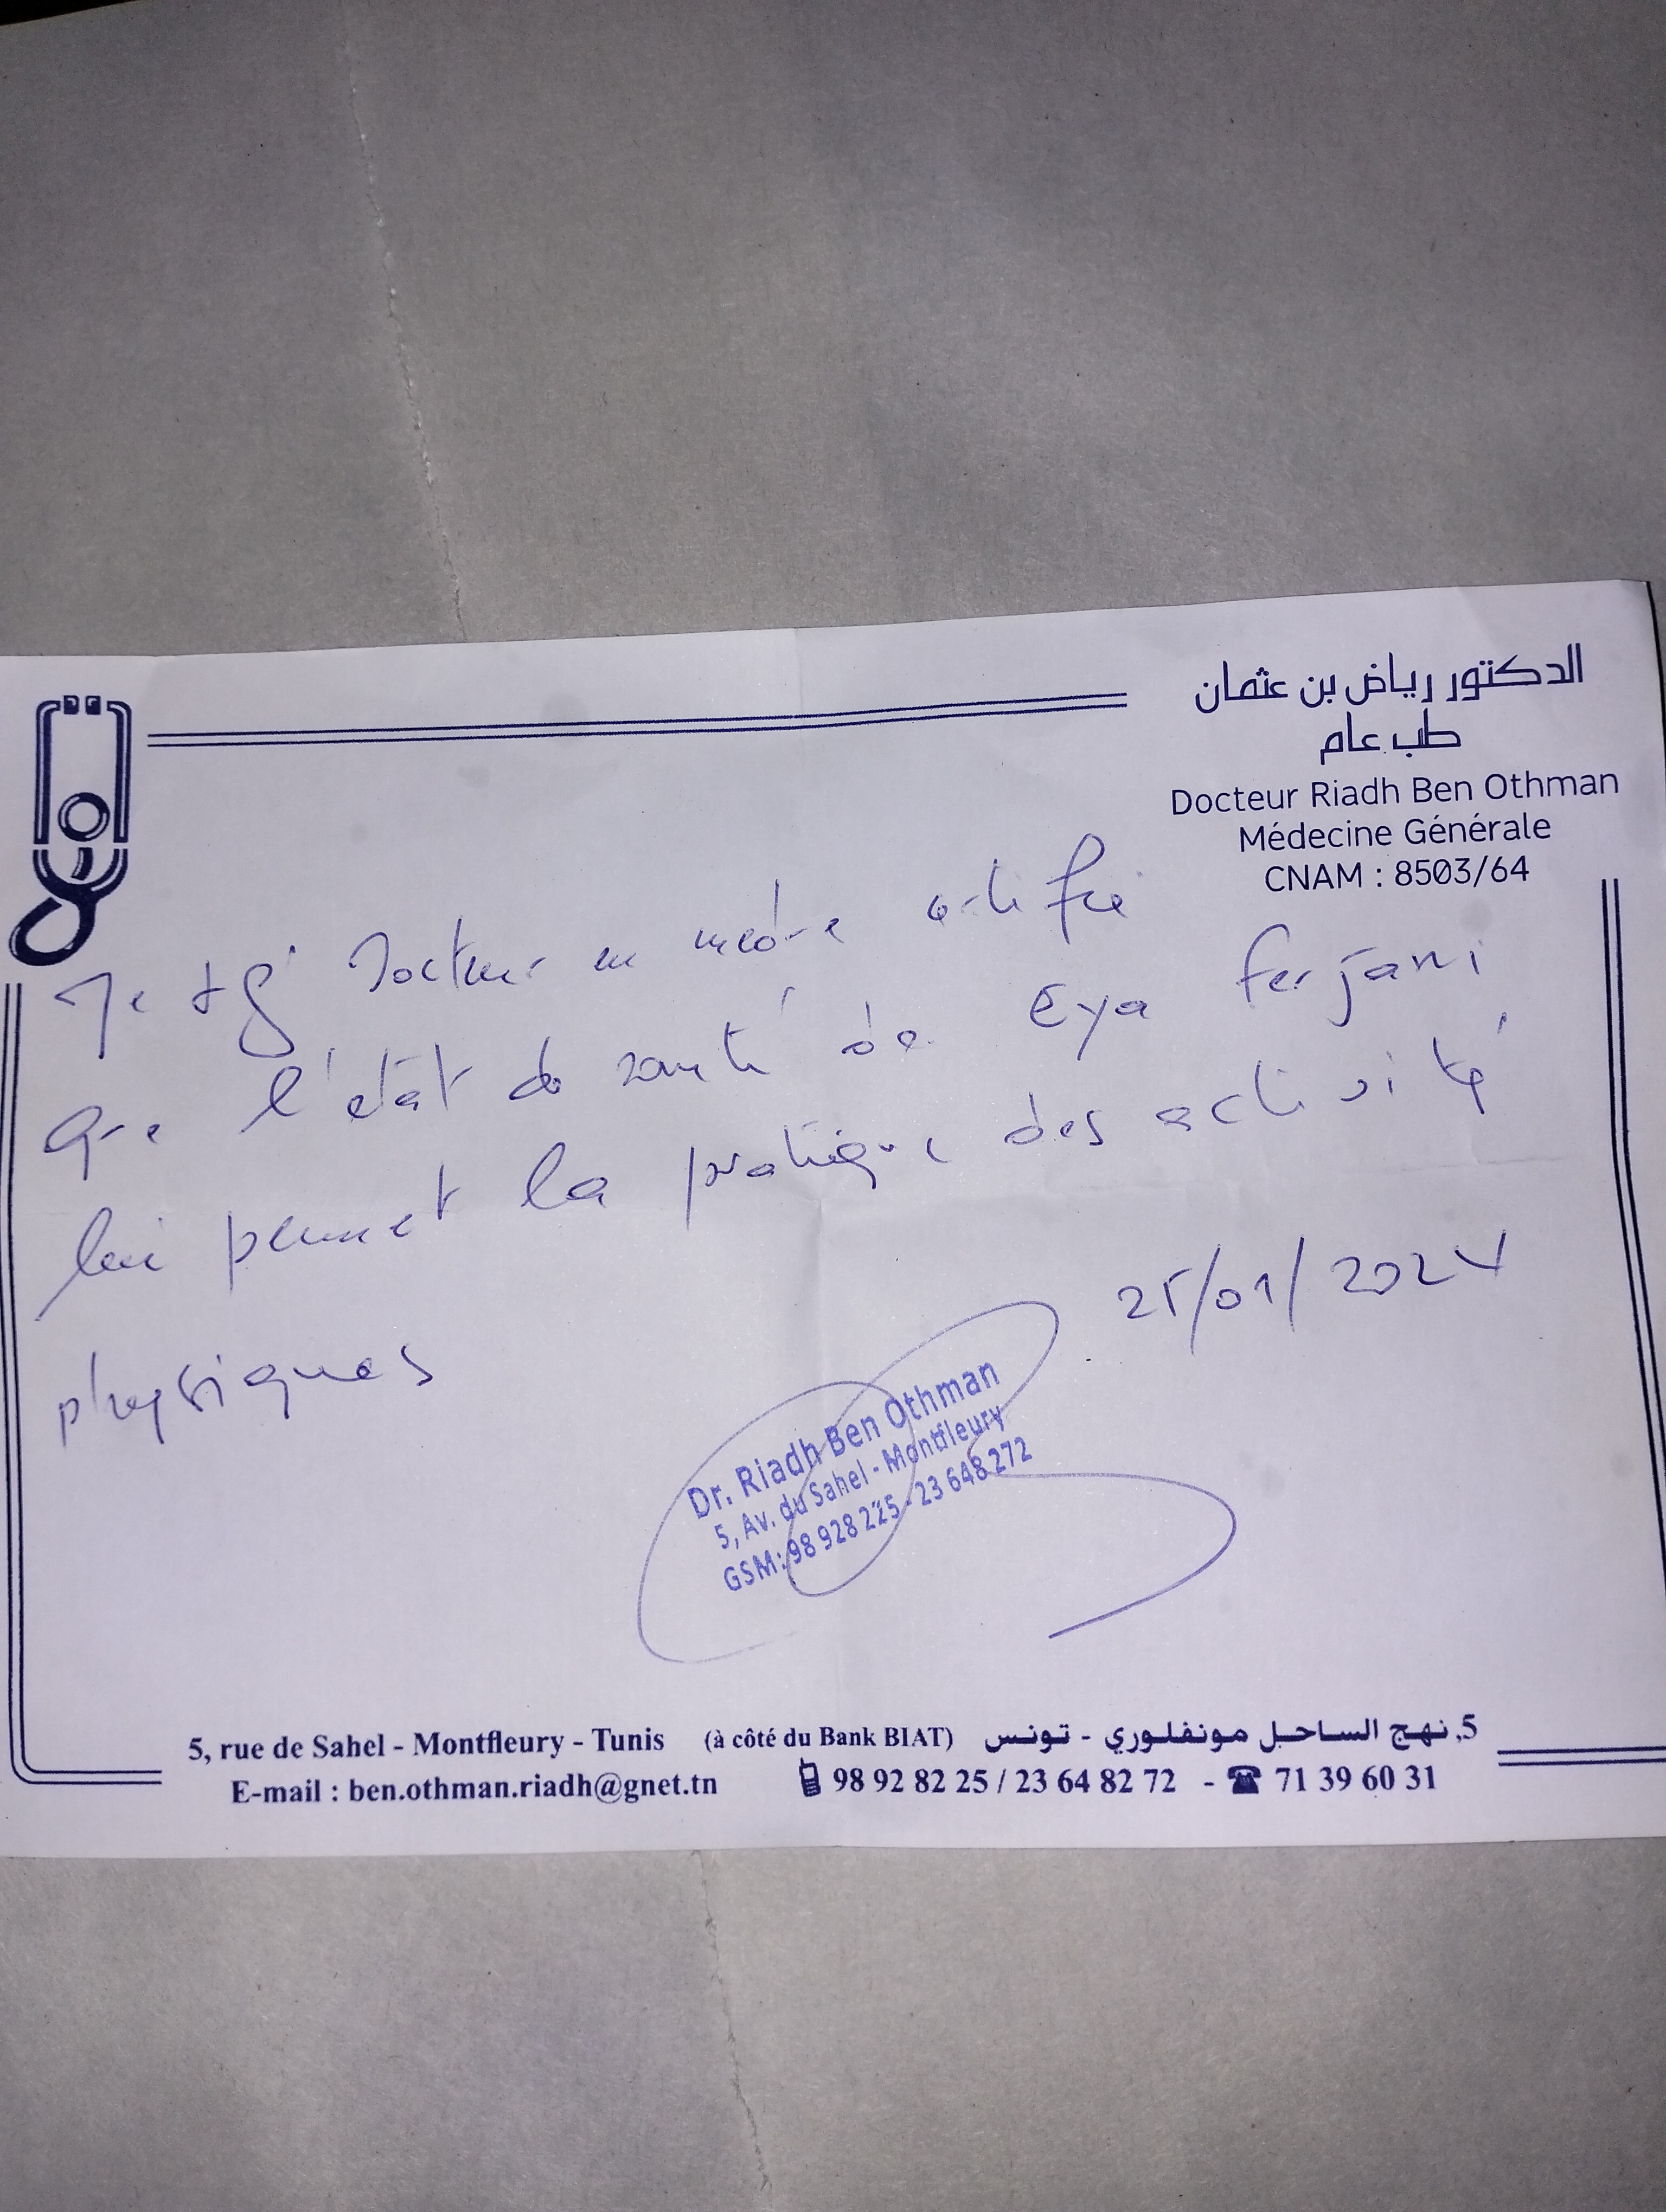 الدكتور رياض بن عثمان
طب عام
Docteur Riadh Ben Othman
Médecine Générale
CNAM : 8503/64
Je Docteur en certifie
que l'état de santé de Eya Ferjani
lui permet la pratique des activité
physiques
25/01/2024
Dr. Riadh Ben Othman
5, Av. du Sahel - Montfleury
GSM: 98 928 225 - 23 648 272
5, rue de Sahel - Montfleury - Tunis (à côté du Bank BIAT) 5, نهج الساحل مونفلوري - تونس
E-mail : ben.othman.riadh@gnet.tn 98 92 82 25 / 23 64 82 72 - 71 39 60 31